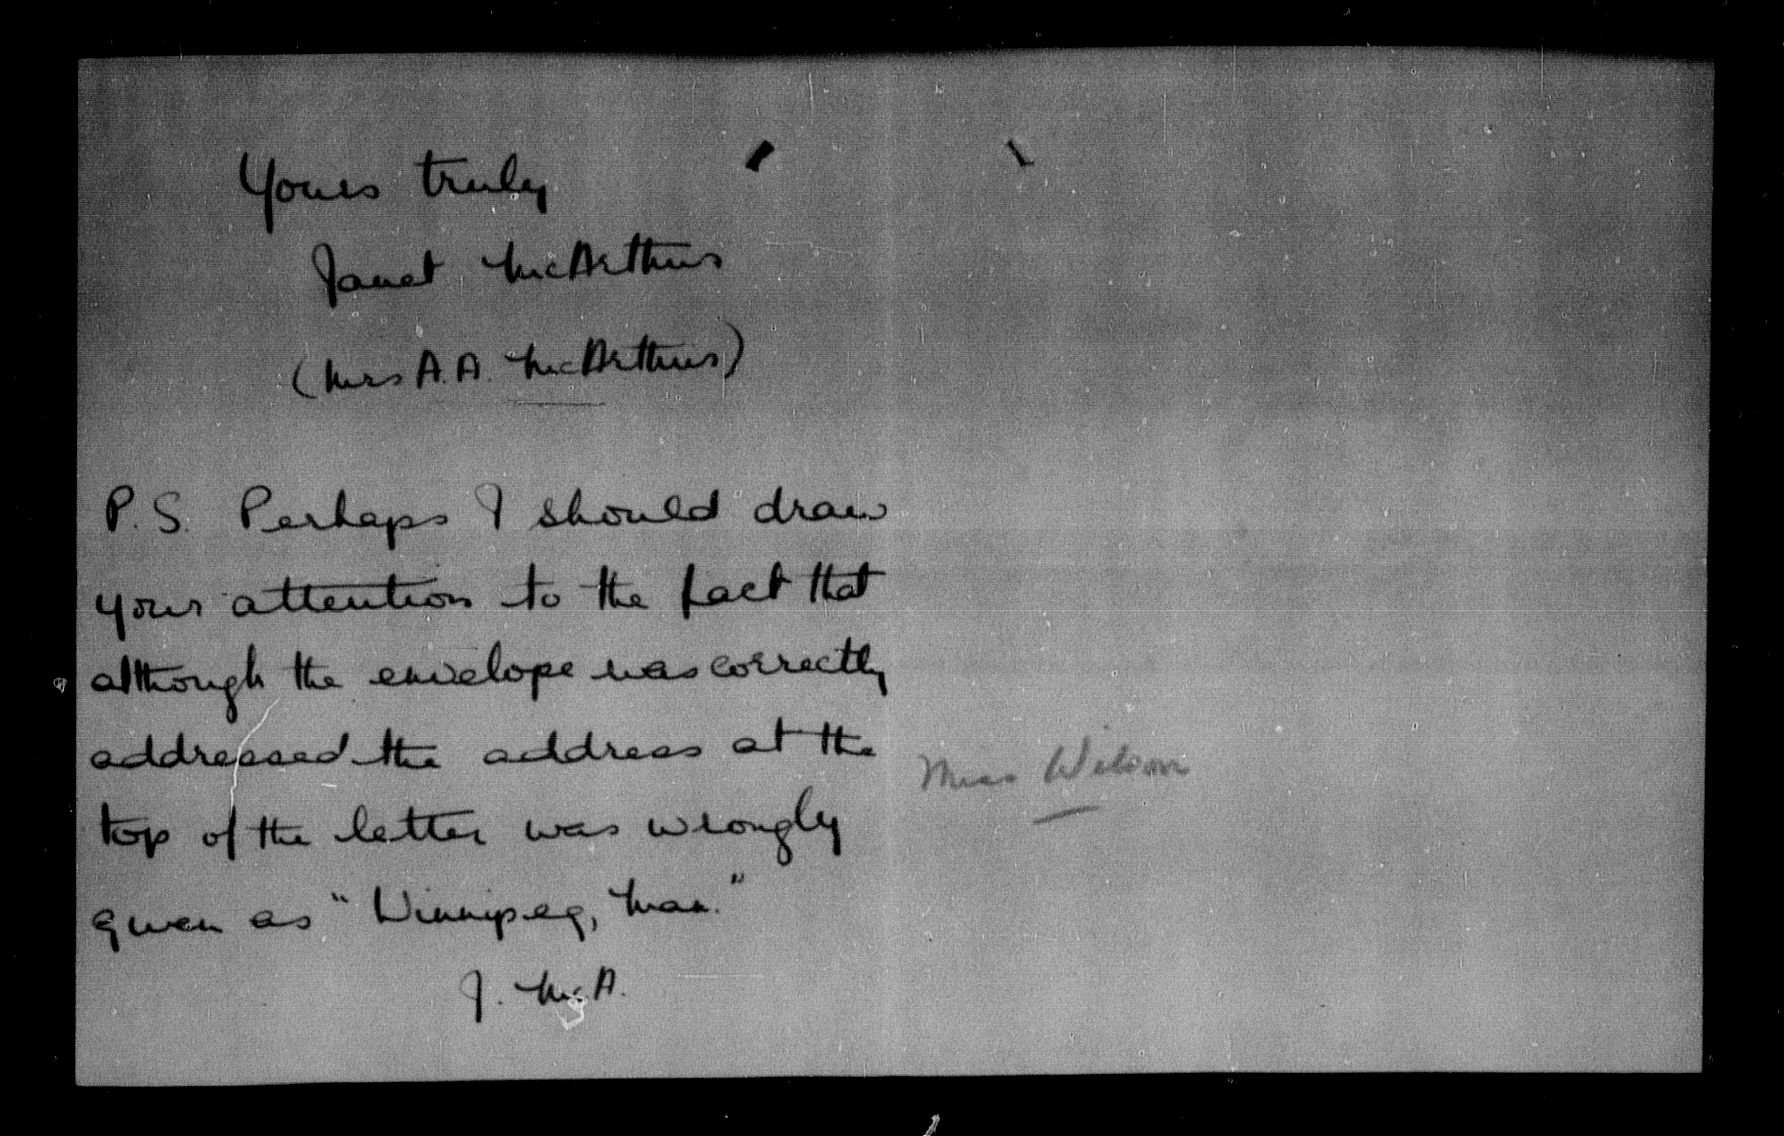 Yours truly
Janet McArthur
(Mrs A.A. McArthur)
P.S. Perhaps I should draw
your attention to the fact that
although the envelope was correctly
addressed the address at the
top of the letter was wrongly
given as "Winnipeg, Man."
J. McA.
Miss Wilson